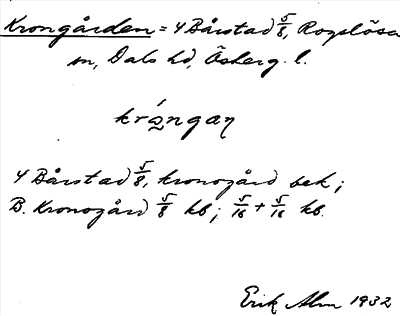 Krongården = 4 Bårstad 5/8, Rogslösa
sn, Dals hd, Östergl.
krǻngan
4 Bårstad 5/8, kronogård bek;
B. Kronogård 5/8 kb; 5/16 + 5/16 kb.
Erik Alm 1932